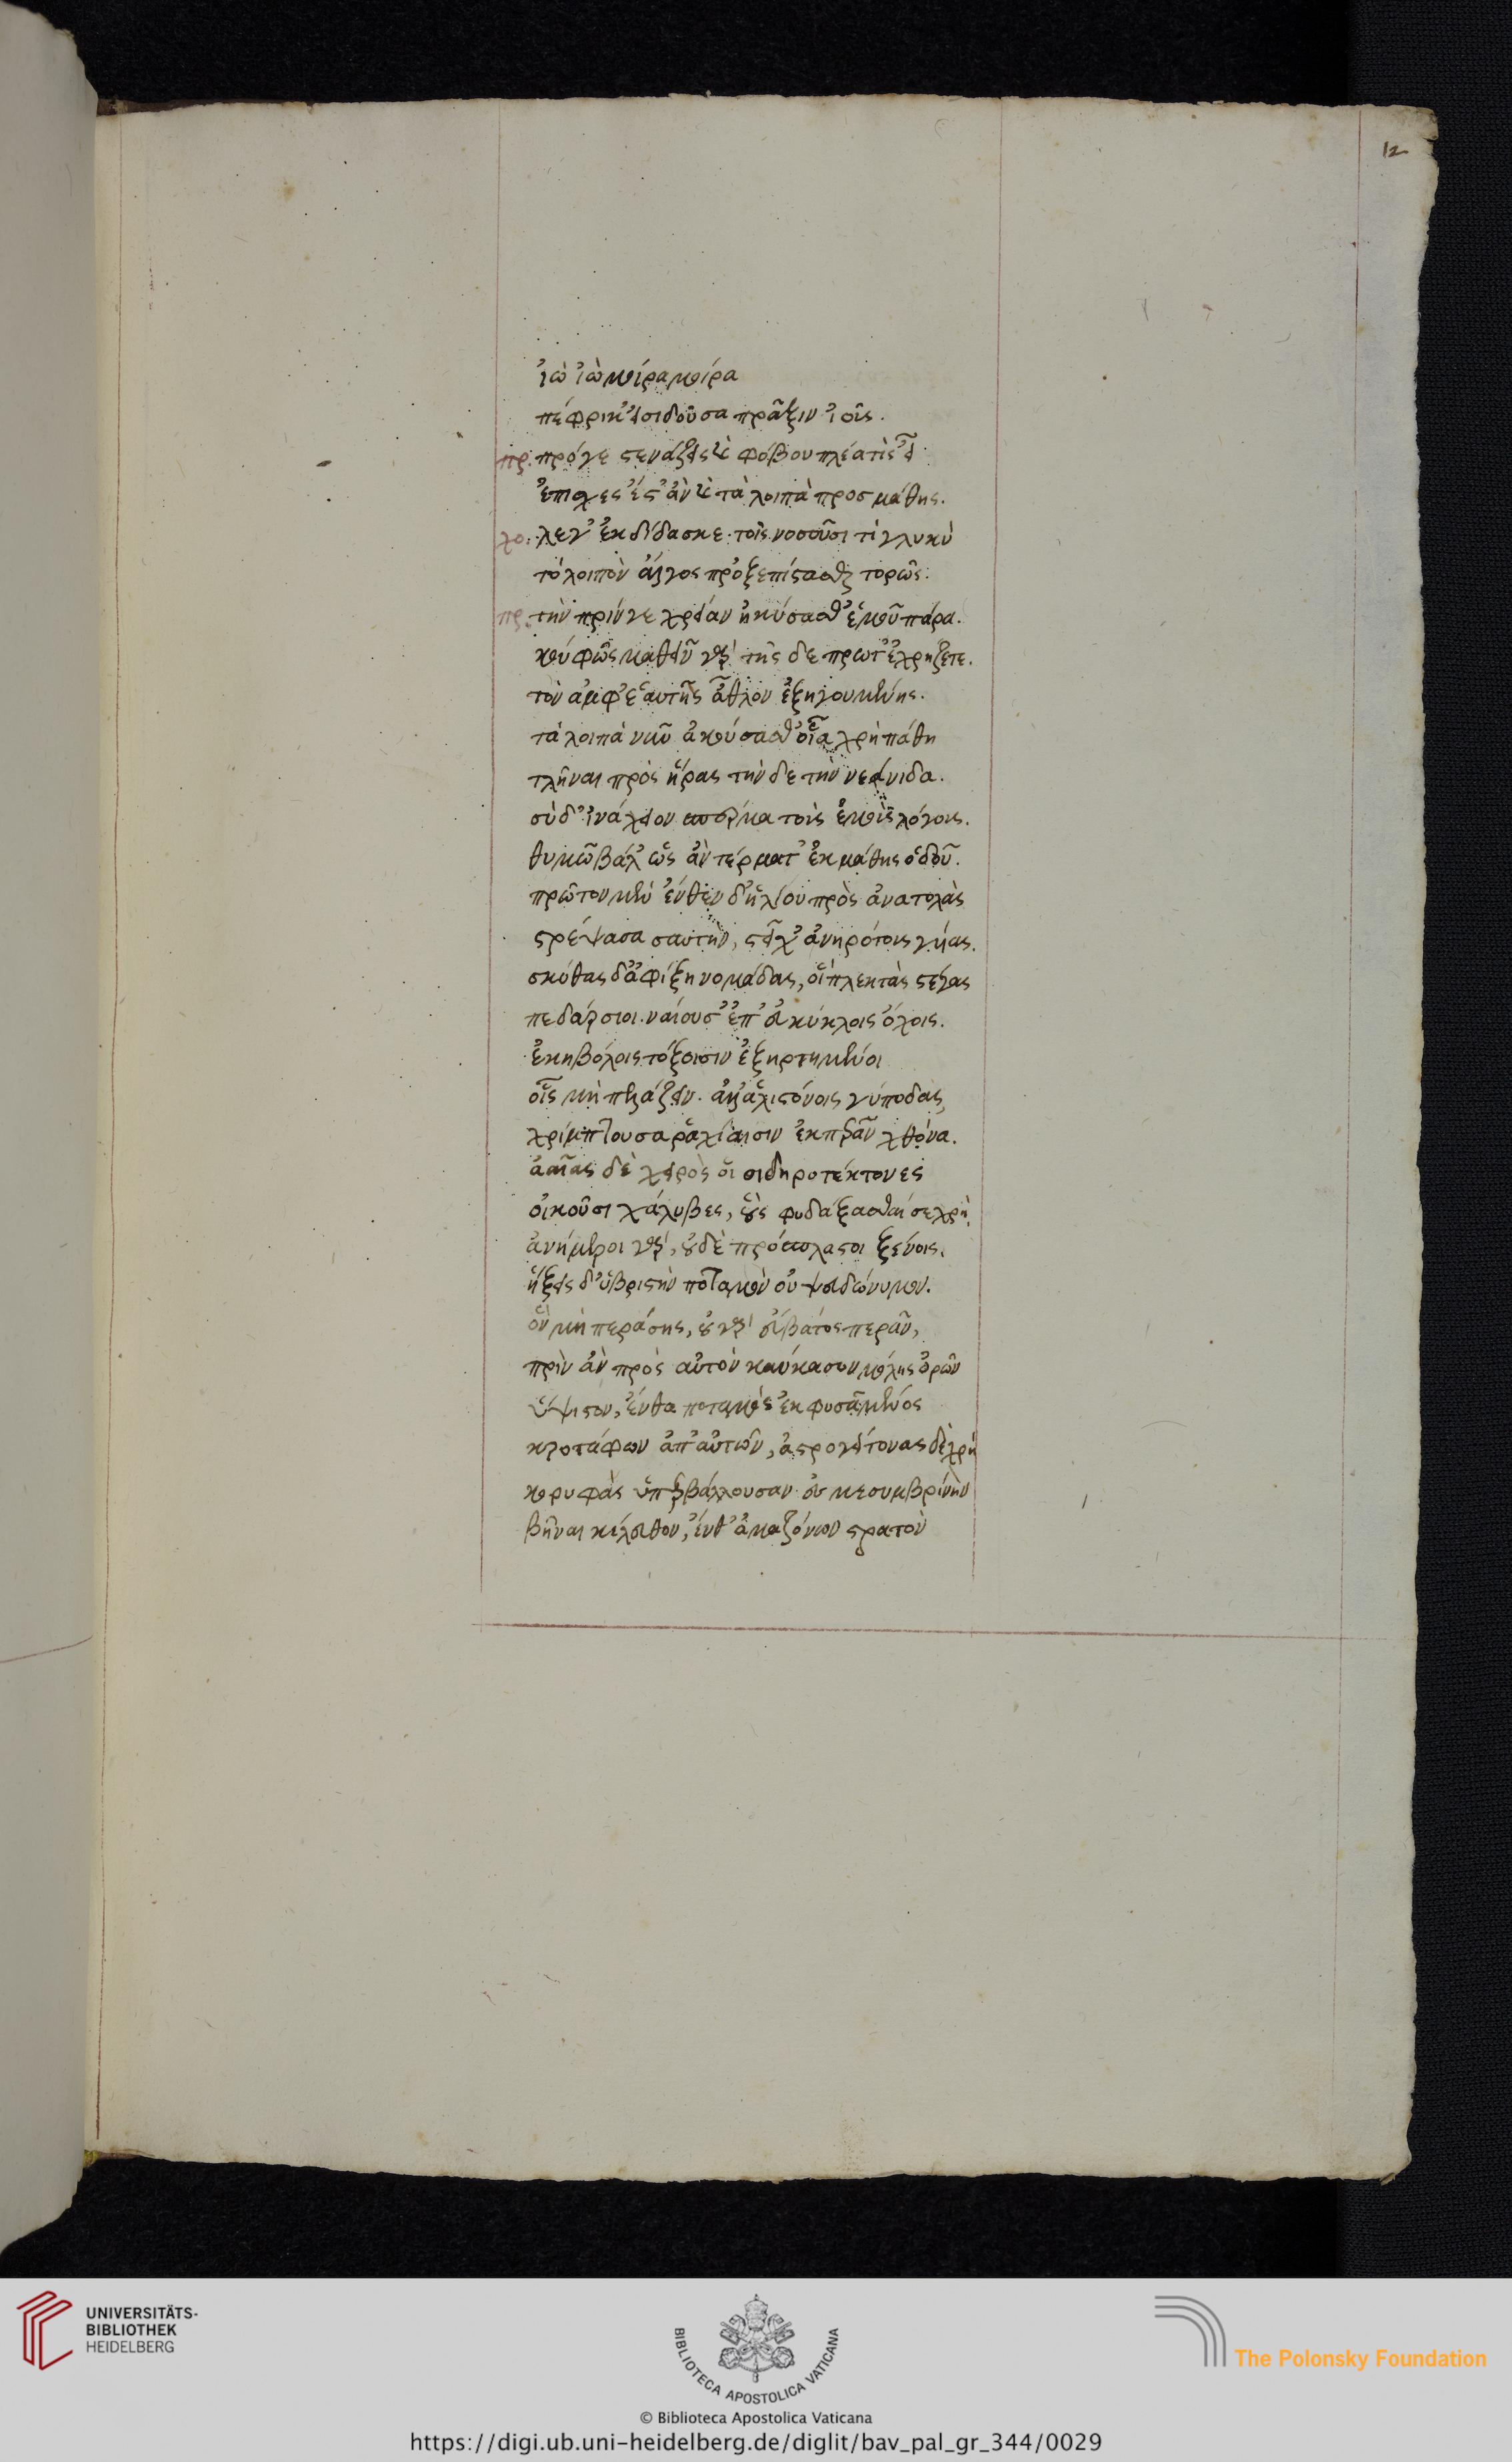 12
ἰὼ ἰὼ μοίρα μοίρα
πέφρικ' εἰσιδοῦσα πρᾶξιν ἰοῖς.
πρ. πρόγε στενάζεις καὶ φόβου πλέα τὶς εἶ
ἐπίσχες ἔς τ' ἂν καὶ τὰ λοιπὰ προσμάθης.
χο. λεγ' ἐκδίδασκε. τοῖς νοσοῦσί τι γλυκὺ
τὸ λοιπὸν ἄλγος προὐξεπίστασθαι τορῶς.
πρ. τὴν πρίν γε χρείαν ἠκύσασθ' ἐμοῦ πάρα.
κούφως μαθεῖν γὰρ τῆς δε πρωτ' ἐχρήζετε.
τὸν ἀμφ' ἑαυτῆς ἆθλον ἐξηγουμένης.
τὰ λοιπὰ νῦν ἀκούσασθ' οἷα χρὴ πάθη
τλῆναι πρὸς ἥρας τήνδε τὴν νεάνιδα.
σὺ δ' ἰνάχειον σπέρμα τοὺς ἐμοὺς λόγους.
θυμῷ βάλ' ὡς ἂν τέρματ' ἐκμάθης ὁδοῦ.
πρῶτον μὲν ἐνθένδ' ἡλίου πρὸς ἀνατολὰς
στρέψασα σαυτὴν, στεῖχ' ἀνηρότους γύας.
σκύθας δ' ἀφίξη νομάδας, οἳ πλεκτὰς στέγας
πεδάρσιοι ναίουσ' ἐπ' εὐκύκλοις ὄχοις.
ἑκηβόλοις τόξοισιν ἐξηρτημένοι
οἷς μὴ πελάζειν. ἀλλ' ἁλιστόνοις γύποδας
χρίμπτουσα ῥαχίαισιν ἐκπερᾶν χθόνα.
λαιᾶς δὲ χειρὸς οἱ σιδηροτέκτονες
οἰκοῦσι χάλυβες, οὓς φυλάξασθαί σε χρὴ.
ἀνήμεροι γὰρ, οὐδὲ πρόσπλαστοι ξένοις.
ἥξεις δ' ὑβριστὴν ποταμὸν οὐ ψευδώνυμον.
ὃν μὴ περάσης, οὐ γὰρ εὔβατος περᾶν,
πρὶν ἂν πρὸς αὐτὸν καύκασον μόλης ὀρῶν
ὕψιστον, ἔνθα ποταμὸς ἐκφυσᾷ μένος
κροτάφων ἀπ' αὐτῶν, ἀστρογείτονας δὲ χρὴ
κορυφὰς ὑπερβάλλουσαν ἐς μεσυμβρινὴν
βῆναι κέλευθον, ἔνθ' ἀμαζόνων στρατὸν
UNIVERSITÄTS-
BIBLIOTHEK
HEIDELBERG
BIBLIOTECA APOSTOLICA VATICANA
The Polonsky Foundation
© Biblioteca Apostolica Vaticana
https://digi.ub.uni-heidelberg.de/diglit/bav_pal_gr_344/0029